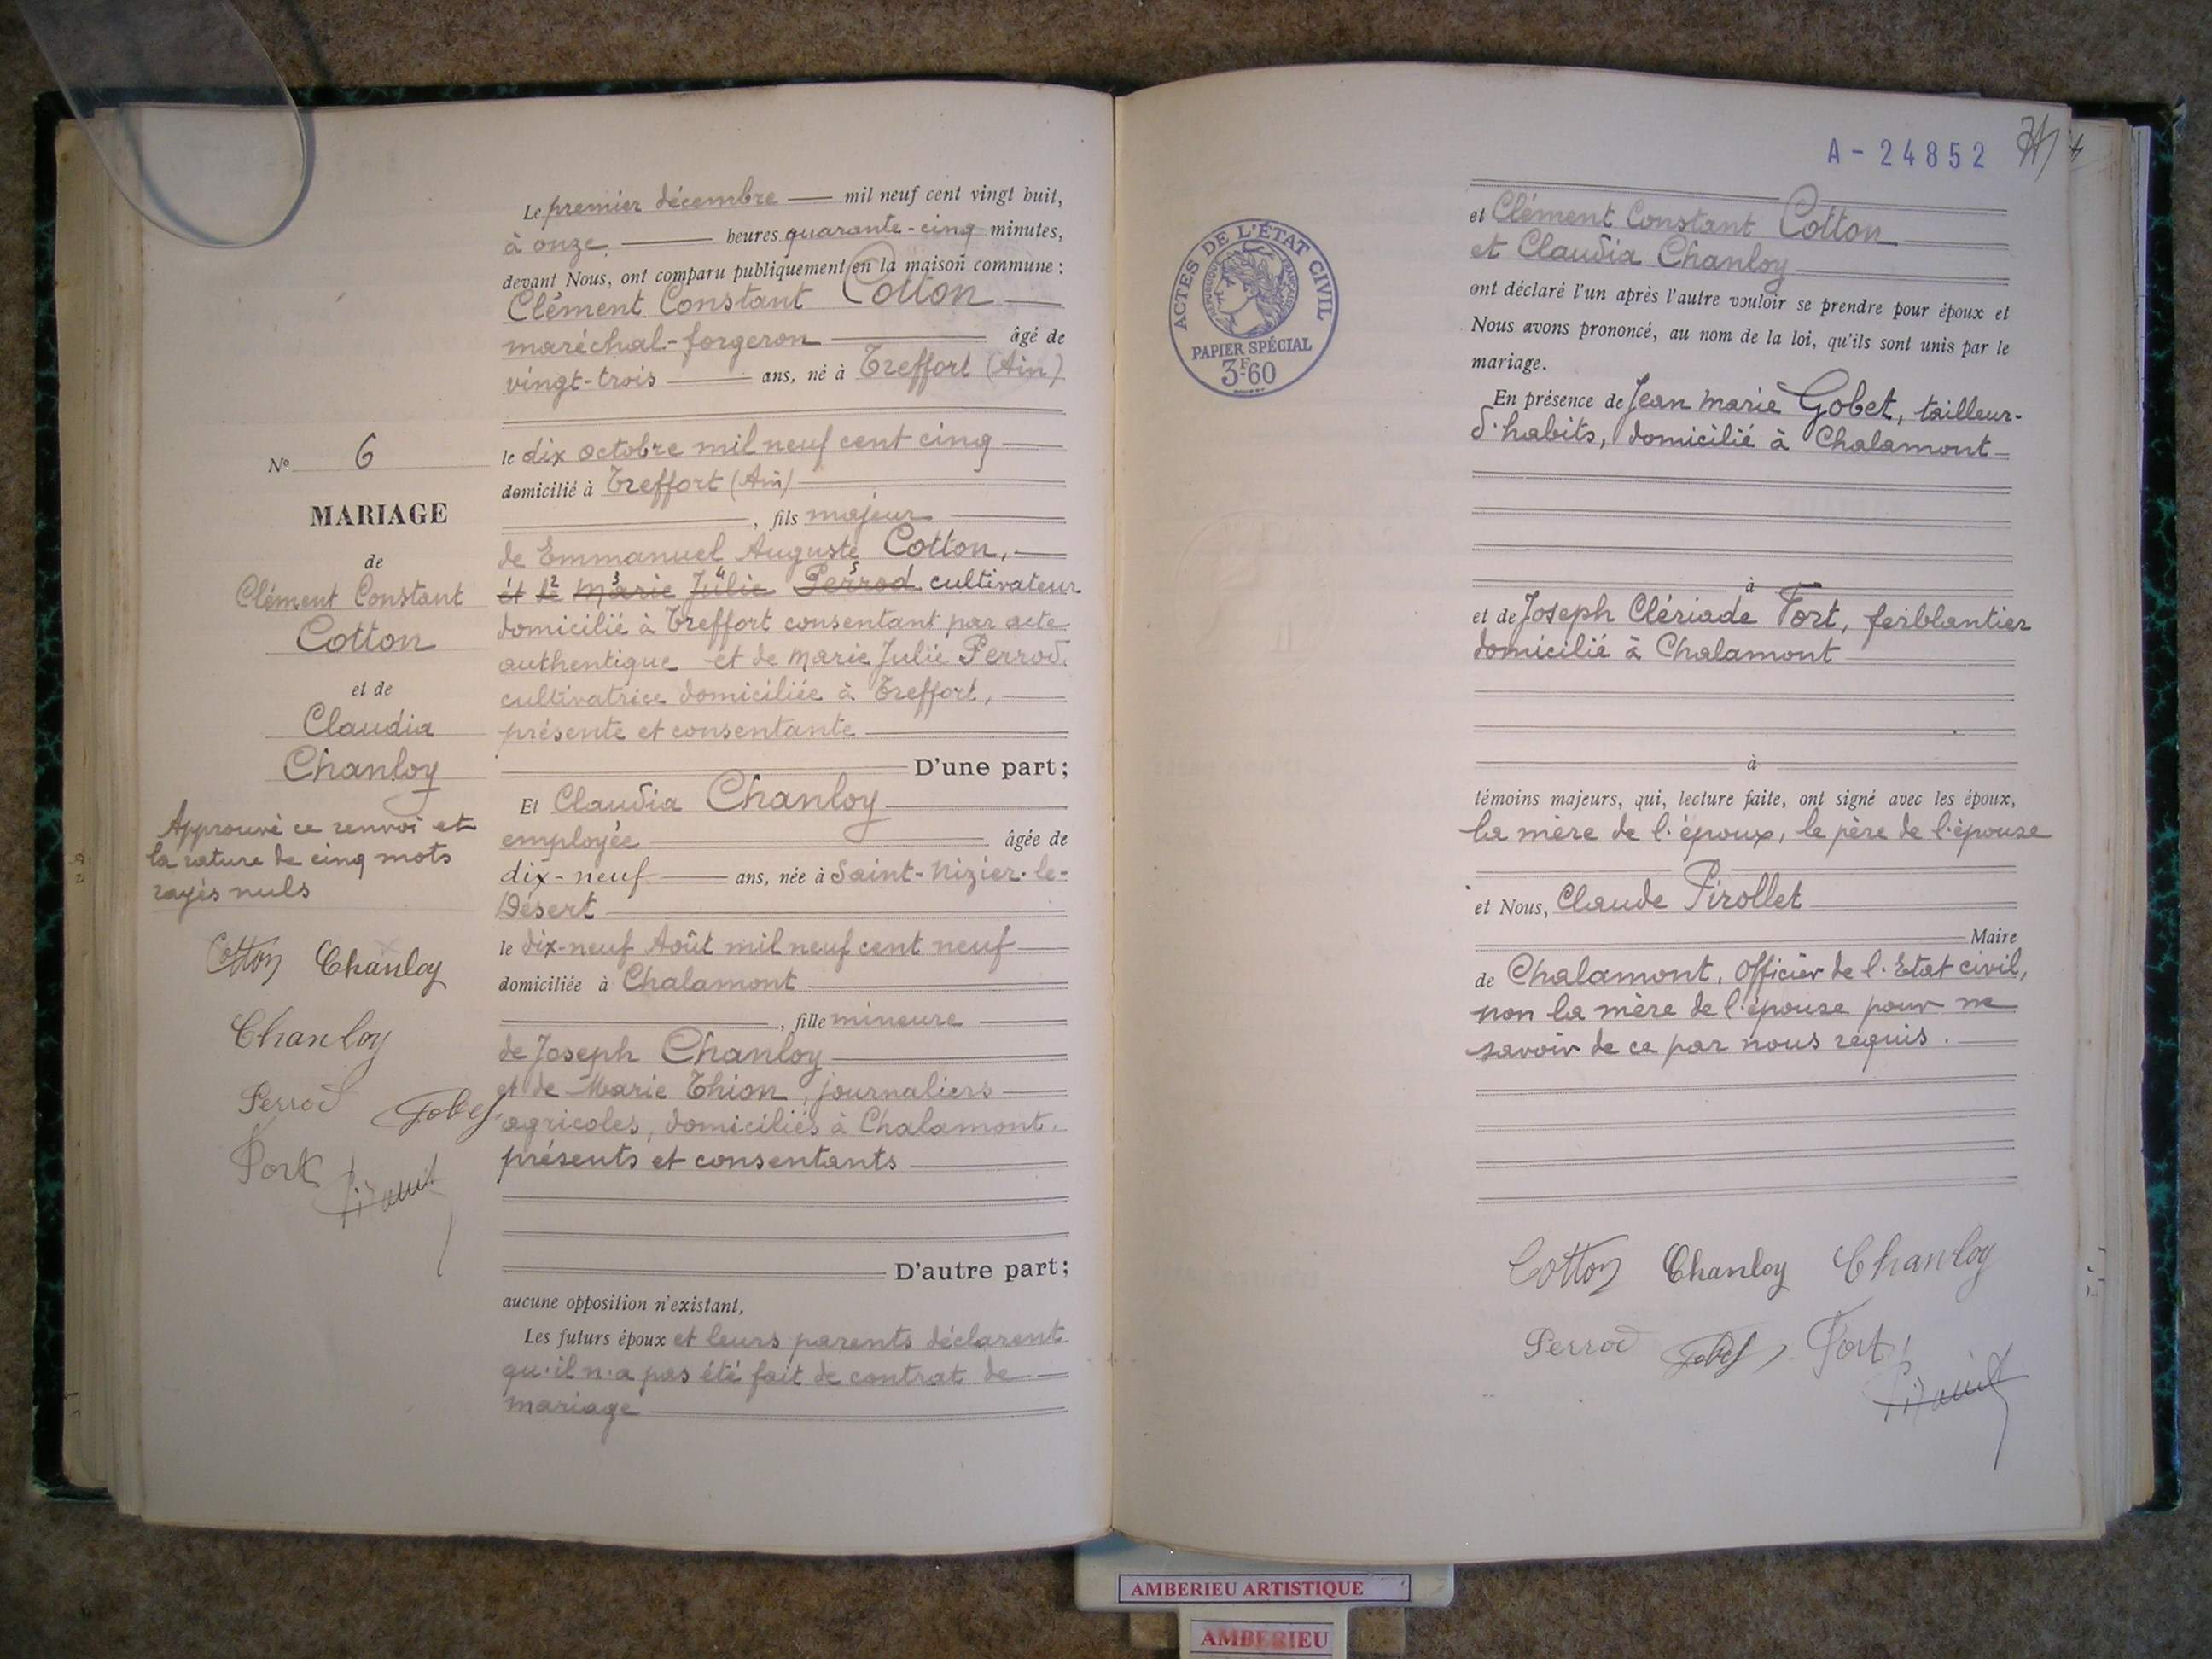 Le premier décembre mil neuf cent vingt huit,
à onze heures quarante-cinq minutes,
devant Nous, ont comparu publiquement en la maison commune :
Clément Constant Cotton
maréchal-forgeron âgé de
vingt-trois ans, né à Treffort (Ain)
le dix octobre mil neuf cent cinq
domicilié à Treffort (Ain)
, fils majeur
de Emmanuel Auguste Cotton,
et de Marie Julie Perrod cultivateur
domicilié à Treffort consentant par acte
authentique et de Marie Julie Perrod,
cultivatrice domiciliée à Treffort,
présente et consentante
D'une part ;
Et Claudia Chanloy
employée âgée de
dix-neuf ans, née à Saint-Nizier-le-
Désert
le dix-neuf Août mil neuf cent neuf
domiciliée à Chalamont
, fille mineure
de Joseph Chanloy
et de Marie Thion, journaliers
agricoles, domiciliés à Chalamont,
présents et consentants
D'autre part ;
aucune opposition n'existant,
Les futurs époux et leurs parents déclarent
qu'il n'a pas été fait de contrat de
mariage
No 6
MARIAGE
de
Clément Constant
Cotton
et de
Claudia
Chanloy
Approuvé ce renvoi et
la rature de cinq mots
rayés nuls
Cotton Chanloy
Chanloy
Perrod Gobet
Fort
A - 24852
ACTES DE L'ÉTAT CIVIL
RÉPUBLIQUE FRANÇAISE
PAPIER SPÉCIAL
3F.60
et Clément Constant Cotton
et Claudia Chanloy
ont déclaré l'un après l'autre vouloir se prendre pour époux et
Nous avons prononcé, au nom de la loi, qu'ils sont unis par le
mariage.
En présence de Jean Marie Gobet, tailleur-
d'habits, domicilié à Chalamont
à
et de Joseph Clériade Fort, ferblantier
domicilié à Chalamont
à
témoins majeurs, qui, lecture faite, ont signé avec les époux,
la mère de l'époux, le père de l'épouse
et Nous, Claude Pirollet
Maire
de Chalamont, Officier de l'Etat civil,
non la mère de l'épouse pour ne
savoir de ce par nous requis.
Cotton Chanloy Chanloy
Perrod Gobet Fort
AMBERIEU ARTISTIQUE
AMBERIEU